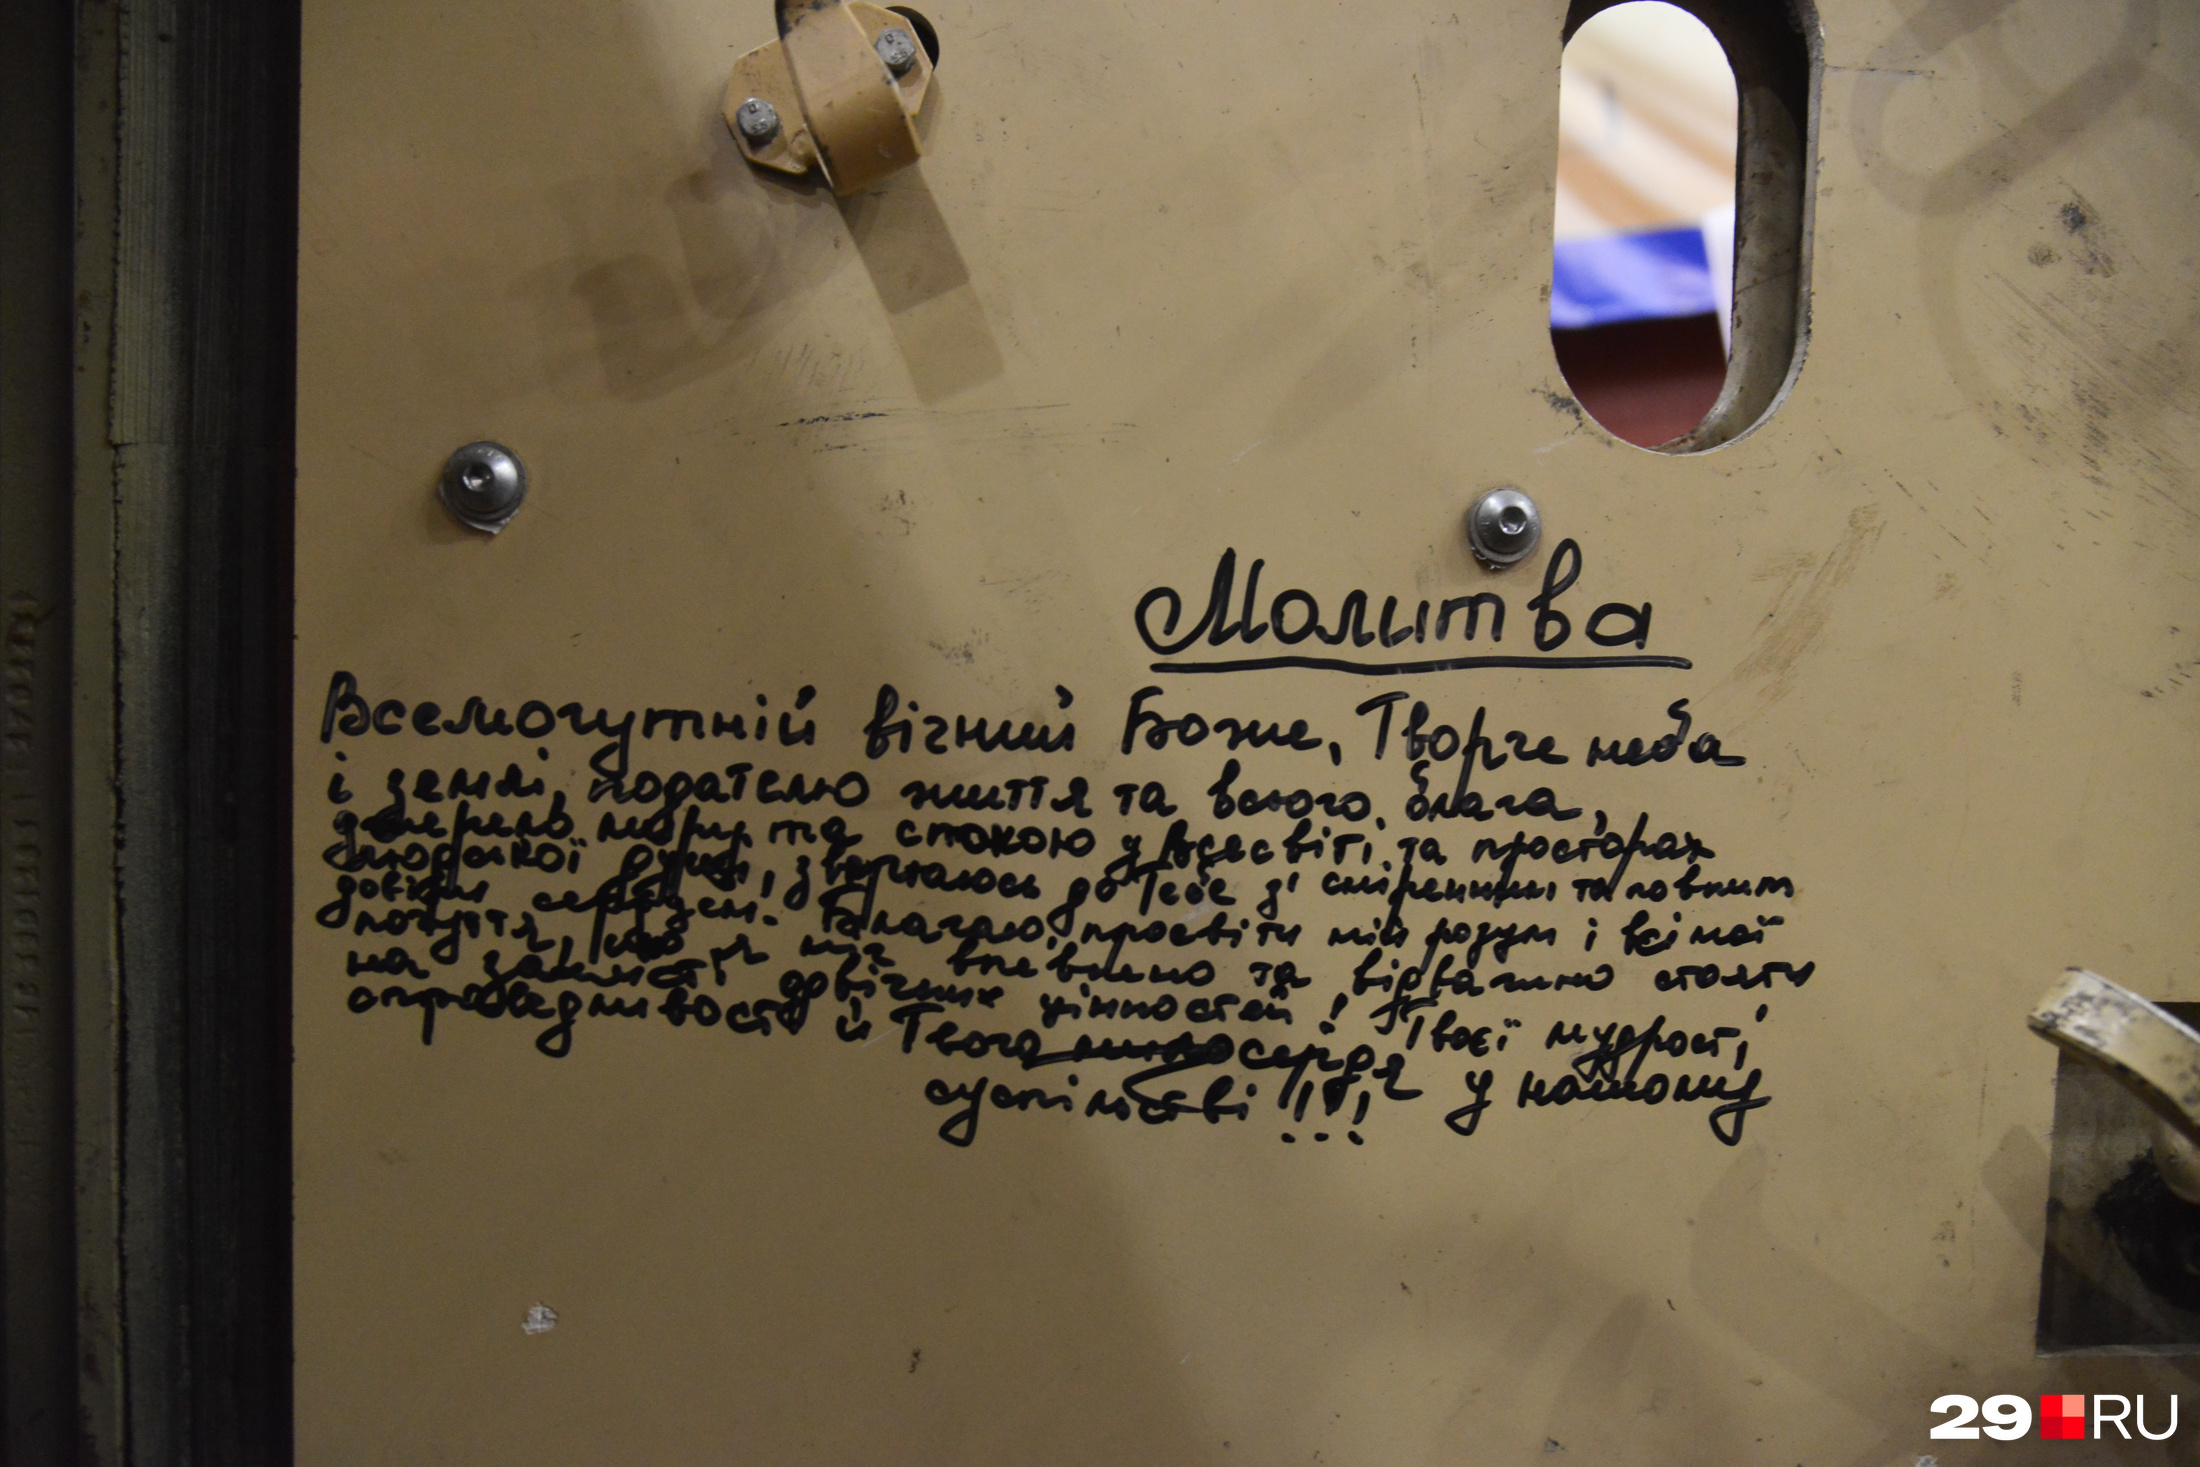 Молитва
Всемогутній вічний Боже, Творче неба
і землі, подателю життя та всього блага,
джерело миру та спокою у Всесвіті та просторах
людської душі, звертаюсь до Тебе зі смиренним та повним
довіри серцем. Благаю, просвіти мій розум і всі мої
почуття, щоб я міг впевнено та відважно стояти
на захисті довічних цінностей! Твоєї мудрості,
справедливості й Твого милосердя у нашому
суспільстві !!!
29.RU